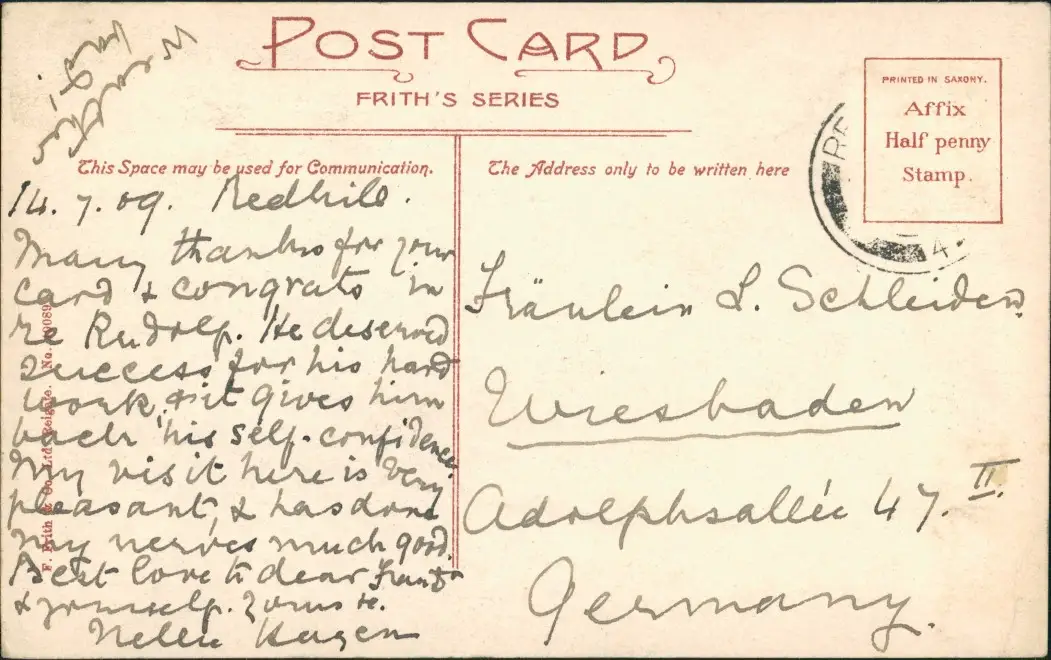 POST CARD
FRITH'S SERIES
PRINTED IN SAXONY.
Affix
Half penny
Stamp.
This Space may be used for Communication.
The Address only to be written here
RE
4.
14. 7. 09. Redhill.
Many thanks for your
card & congrats in
re Rudolf. He deserved
success for his hard
work, & it gives him
back his self-confidence
My visit here is very
pleasant, & has done
my nerves much good.
Best love to dear
& yourself. Yours
Nellie Hagen
Fräulein L. Schleiden
Wiesbaden
Adolphsallée 47. II.
Germany.
F. Frith & Co., Ltd., Reigate. No.